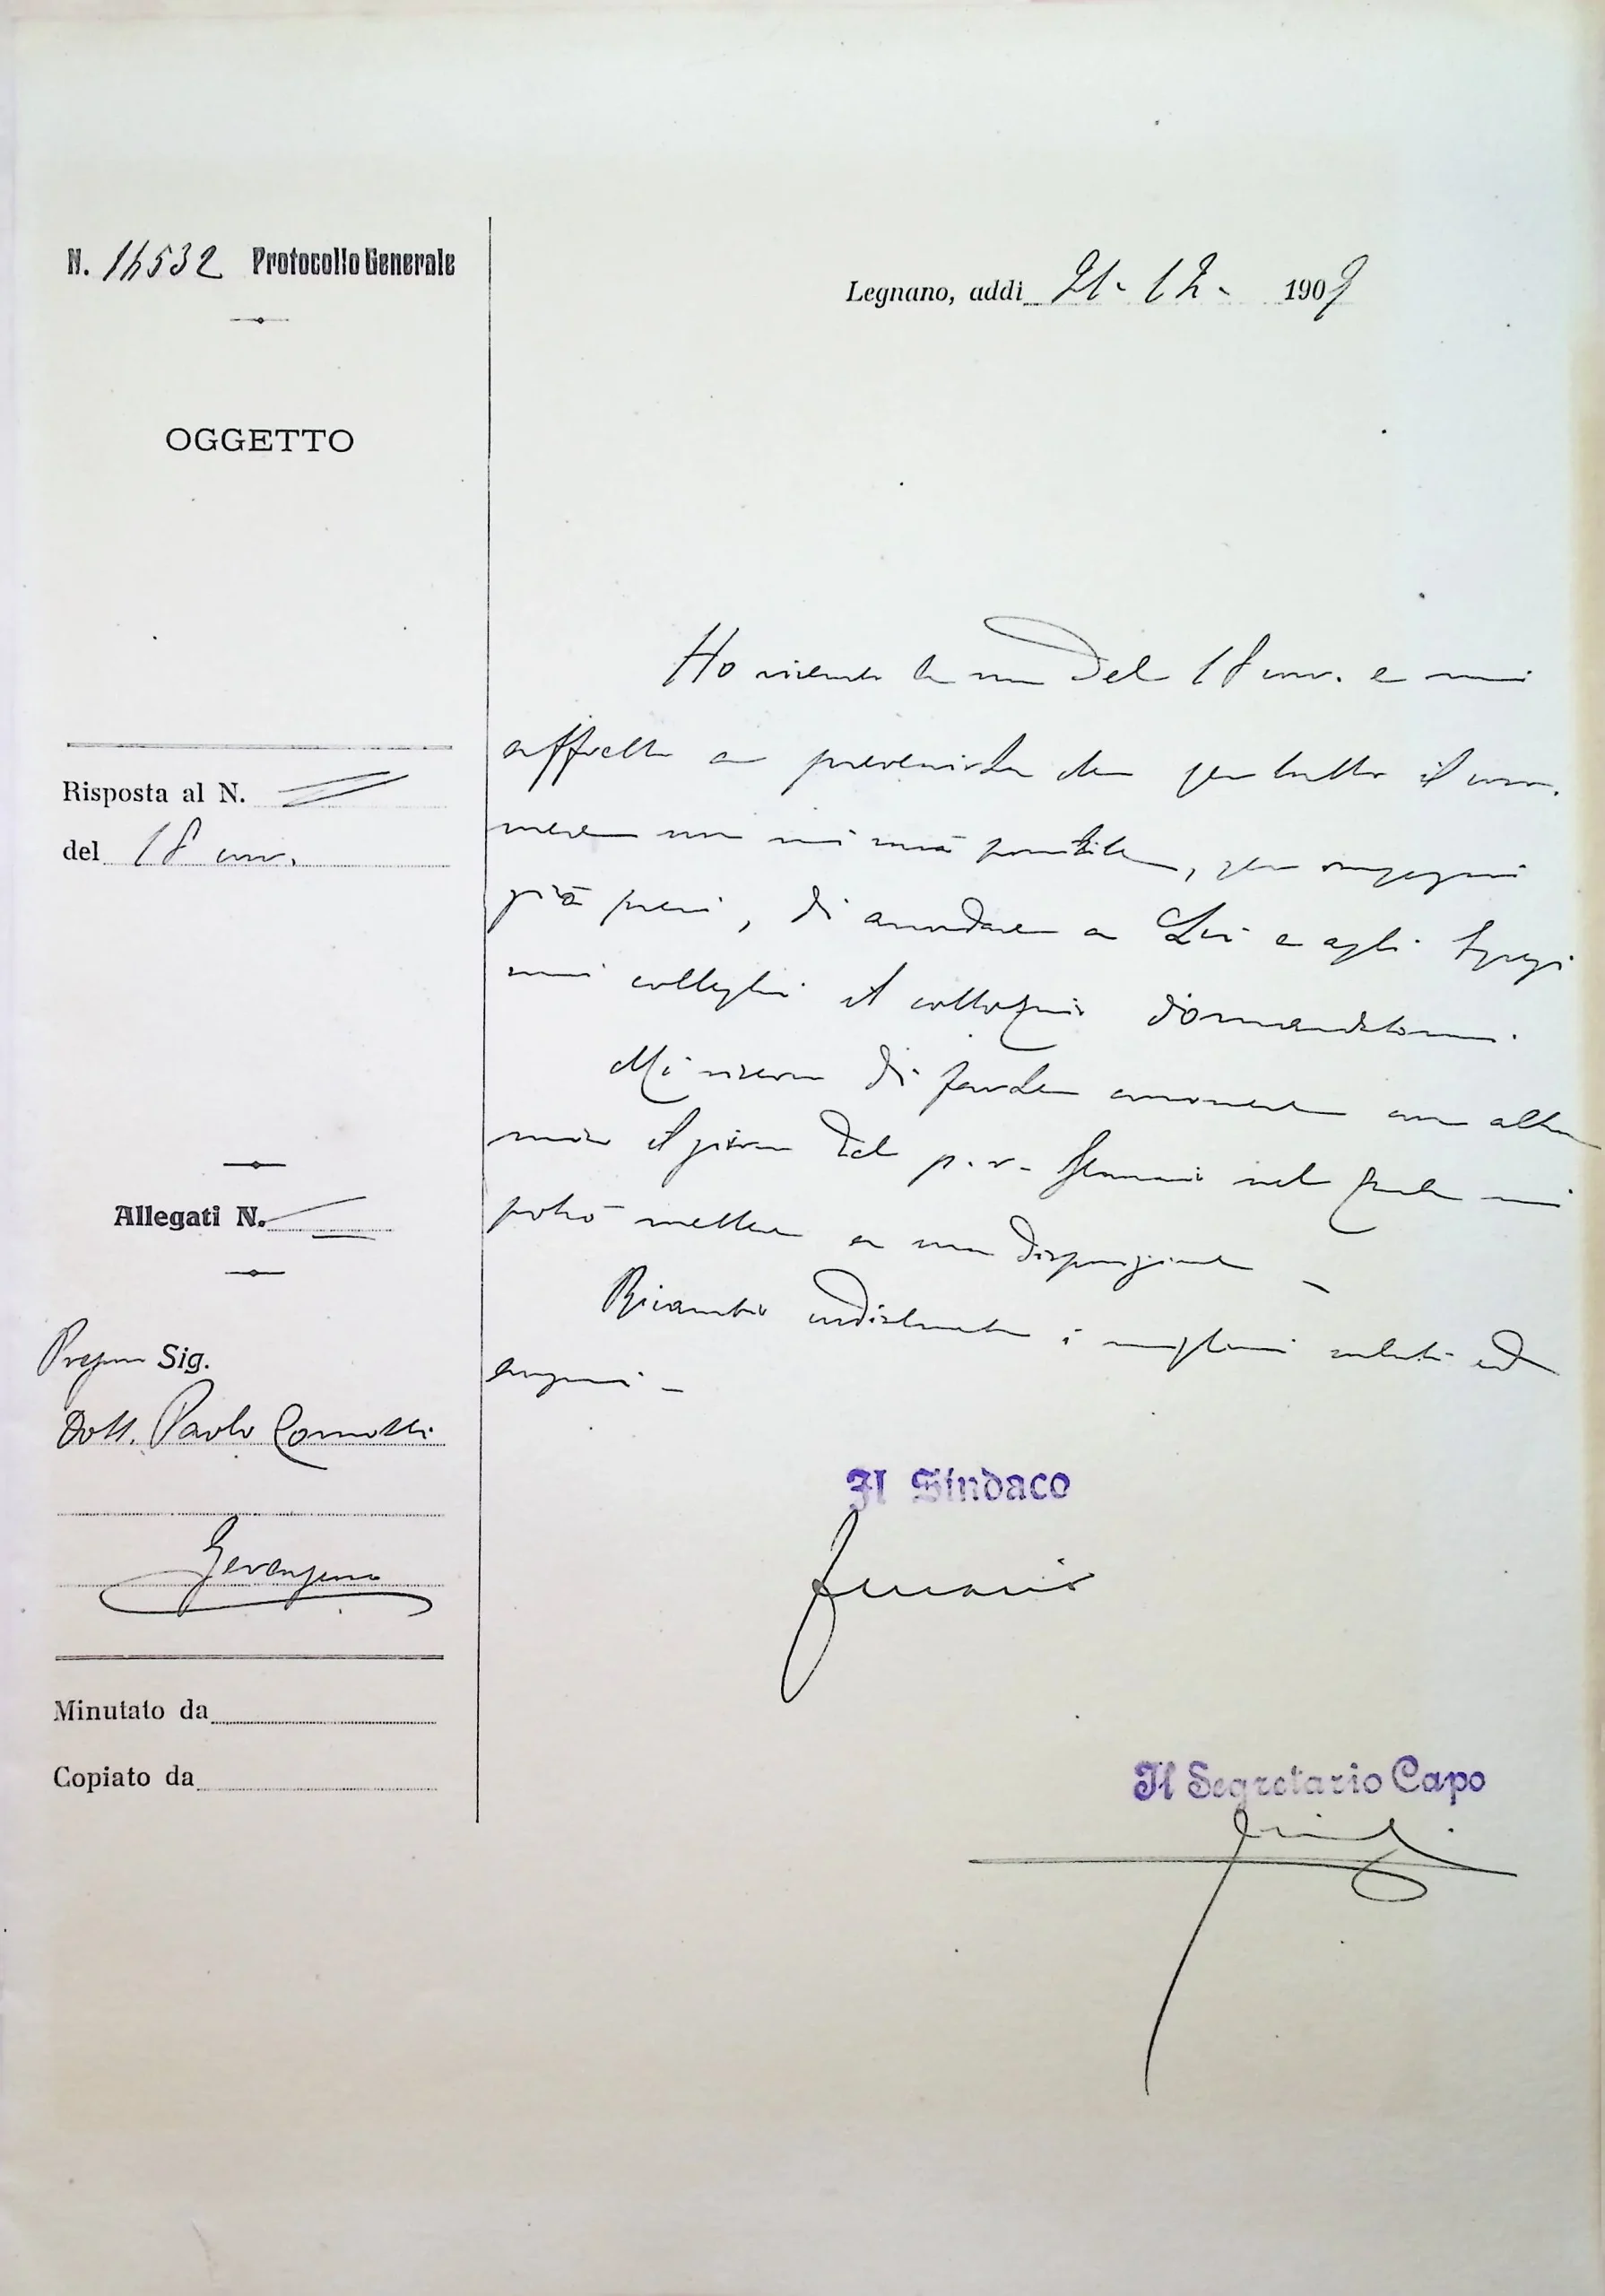 N. 14532 Protocollo Generale
Legnano, addì 21-12- 1909
OGGETTO
Ho ricevuto la sua del 18 corr. e mi
affretto a prevenirla che per tutto il corr.
mese non mi sarà possibile, per impegni
già presi, di accordare a Lei e agli Egregi
suoi colleghi il colloquio domandatomi.
Mi riservo di farle conoscere con altra
mia il giorno del p. v. Gennaio nel quale mi
potrò mettere a sua disposizione -
Ricambio indistintamente i migliori saluti ed
auguri -
Risposta al N.
del 18 corr.
Allegati N.
Sig.
Dott. Paolo
Minutato da
Copiato da
Il Sindaco
Il Segretario Capo